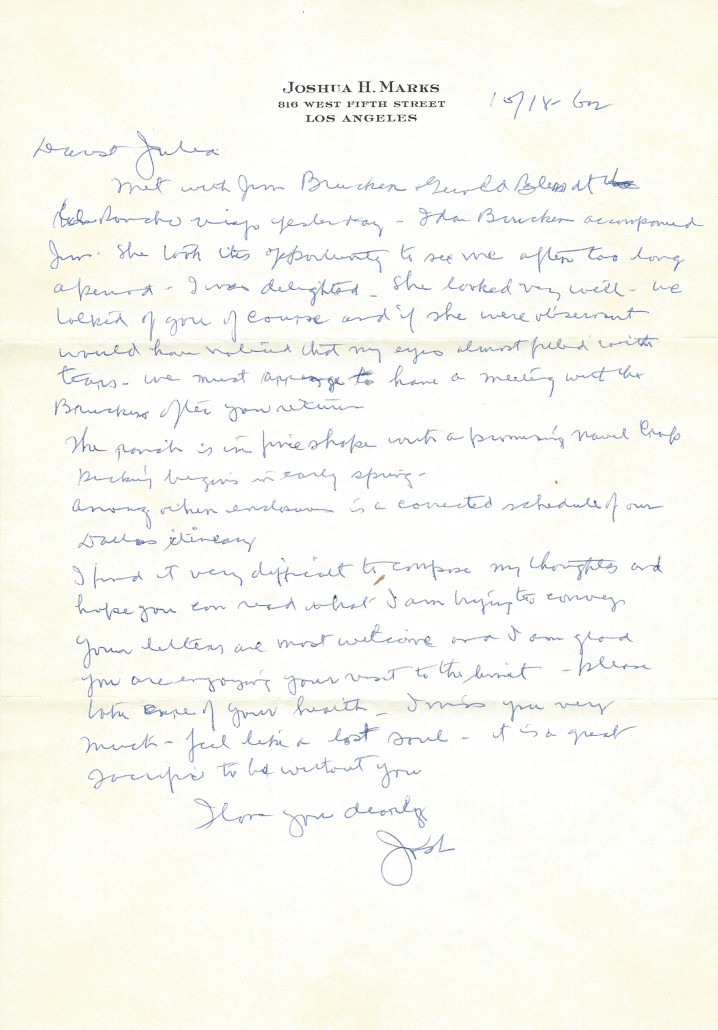 JOSHUA H. MARKS
816 WEST FIFTH STREET
LOS ANGELES
10/18-62
Dearest Julia
Met with Jim Brucker & Gerald at the
Rancho yesterday - Ida Brucker accompanied
Jim. She took this opportunity to see me after too long
a period - I was delighted - She looked very well - we
talked of you of course and if she were observant
would have noticed that my eyes almost filled with
tears - we must arrange to have a meeting with the
Bruckers after you return
The ranch is in fine shape with a promising navel crop
Picking begins in early spring -
Among other enclosures is a corrected schedule of our
Dallas itinerary
I find it very difficult to compose my thoughts and
hope you can read what I am trying to convey.
Your letters are most welcome and I am glad
you are enjoying your visit to the limit - please
take care of your health - I miss you very
much - feel like a lost soul - it is a great
sacrifice to be without you
I love you dearly
Josh